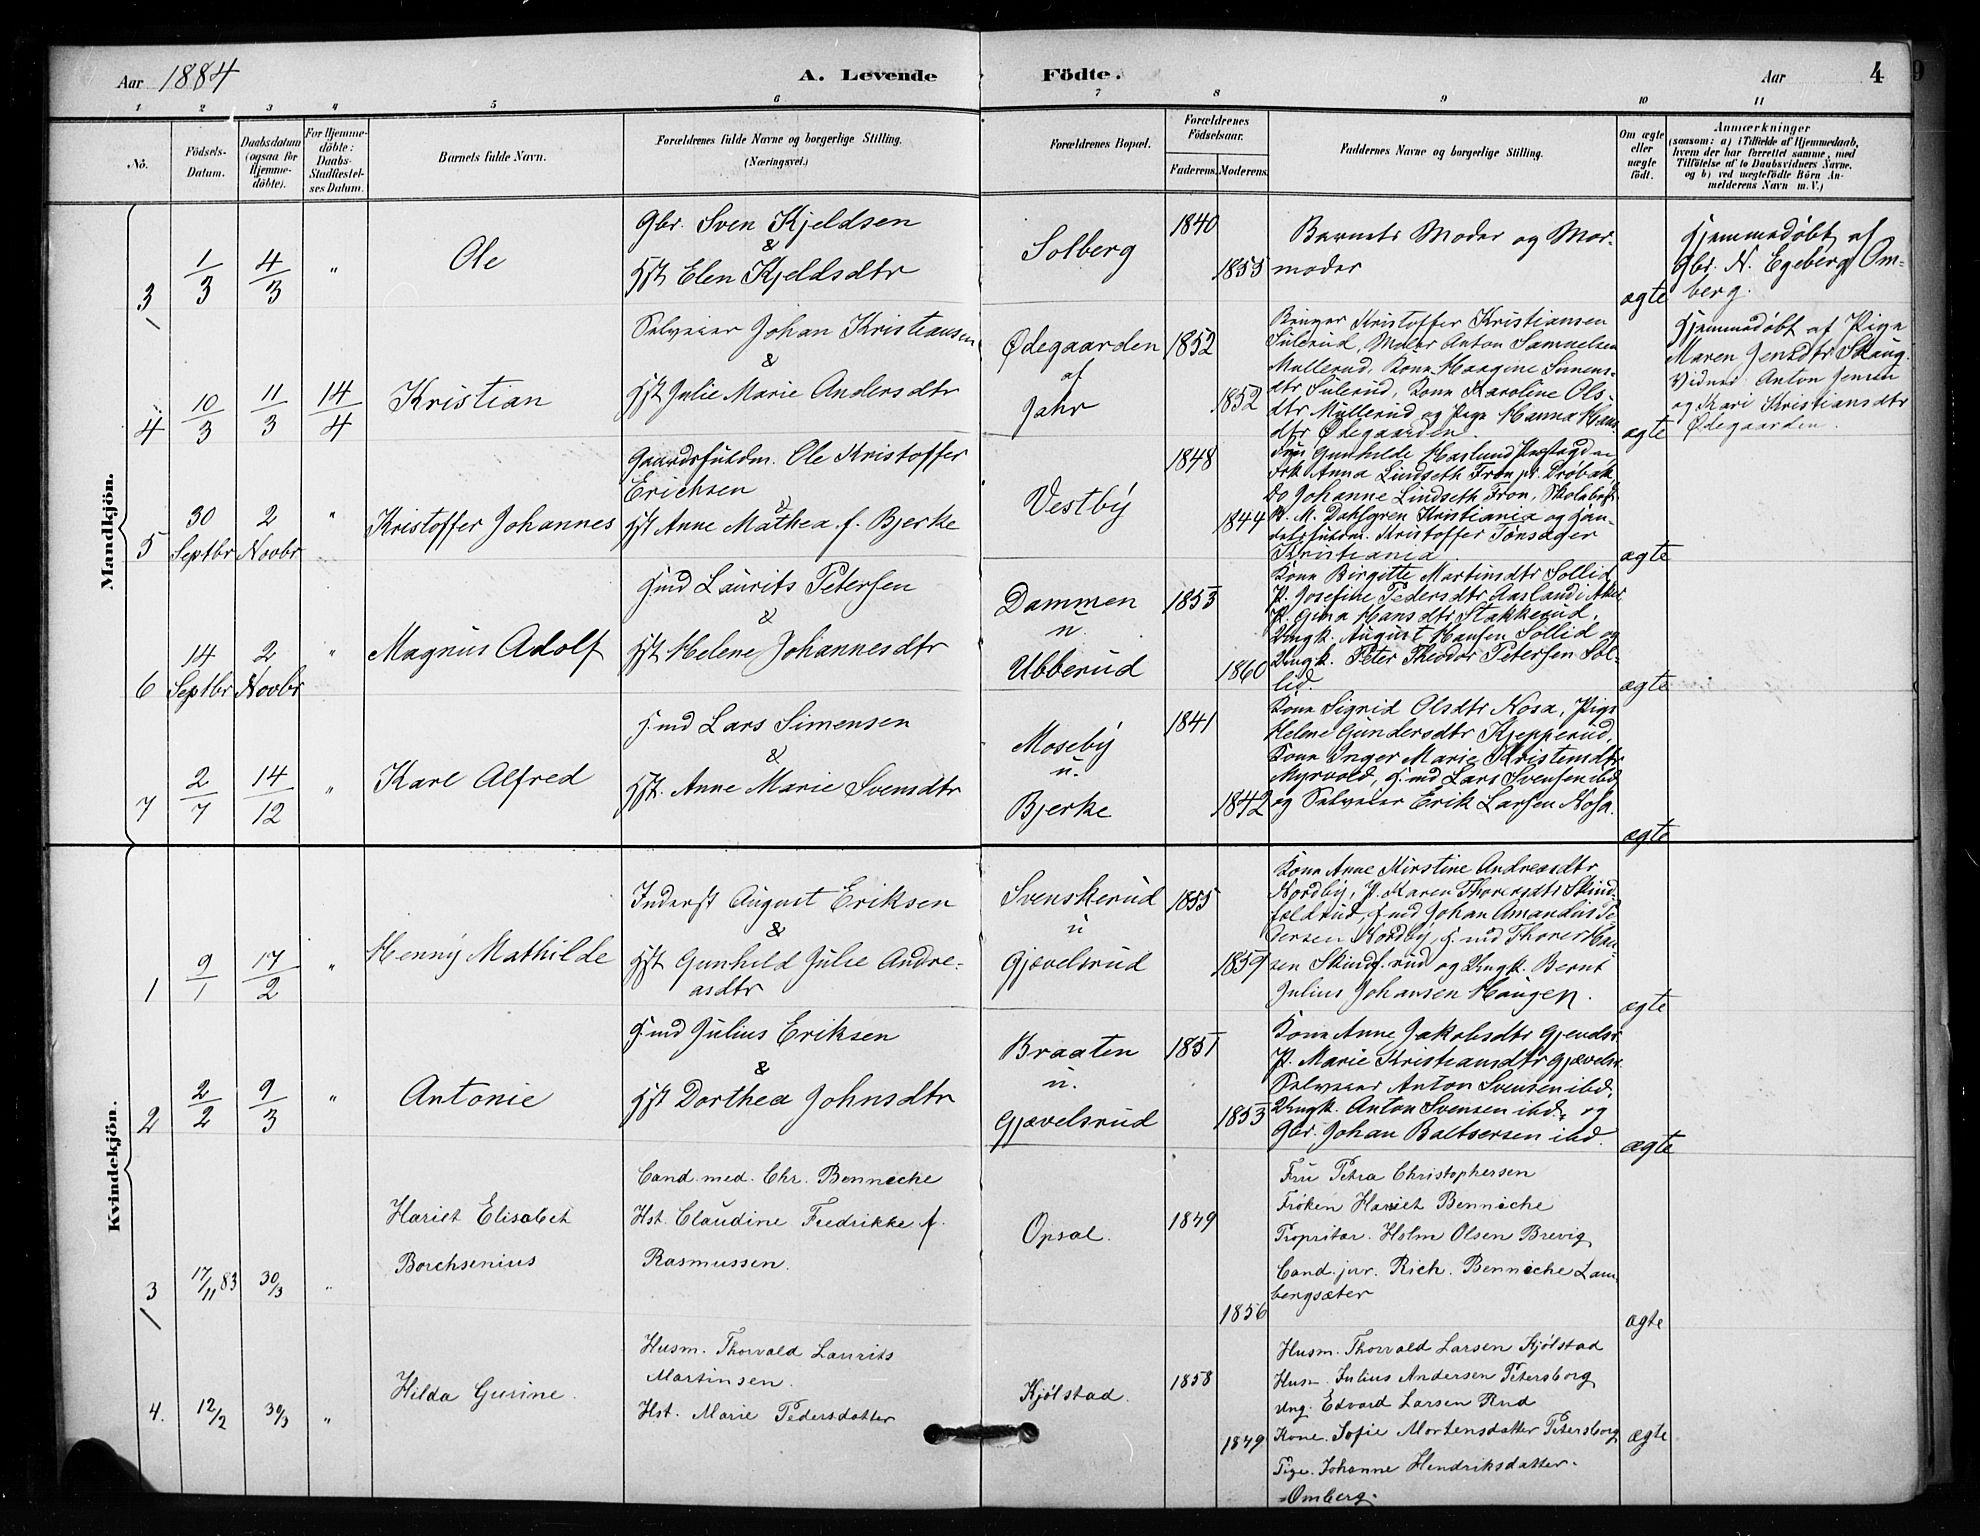 Aar 1884
A. Levende Födte.
Aar
4
9
1 2 3 4 5 6 7 8 9 10 11
Nö.
Födsels-
Datum.
Daabsdatum
(ogsaa for
Hjemme-
döbte).
For Hjemme-
döbte:
Daabs-
Stadfæstel-
ses Datum.
Barnets fulde Navn.
Forældrenes fulde Navne og borgerlige Stilling.
(Næringsvei.)
Forældrenes Bopæl.
Forældrenes
Födselsaar.
Faderens. Moderens.
Faddernes Navne og borgerlige Stilling.
Om ægte
eller
uægte
födt.
Anmærkninger
(saasom: a) i Tilfælde af Hjemmedaab,
hvem der har forrettet samme, med
Tilföielse af to Daabsvidners Navne.
og b) ved uægtefödte Börn An-
melderens Navn m. V.)
Mandkjön.
3
1/3
4/3
"
Ole
Gbr. Sven Kjeldsen
&
Hst Elen Kjeldsdtr
Solberg
1840
1855
Barnets Moder og Mor-
moder
ægte
Hjemmedøbt af
Gbr. N. Egeberg Om-
berg.
4
10/3
11/3
14/4
Kristian
Selveier Johan Kristiansen
&
Hst Julie Marie Andersdtr
Ødegaarden
af
Jahr
1852
1852
Kristoffer Kristiansen
Sülerud, Maler Anton Samuelsen
Müllerud, Kone Hargine Simens-
dtr Sülerud, Kone Karoline Ols-
dtr Müllerud og Pige Hanna Hans-
dtr Ødegaarden.
ægte
Hjemmedøbt af Pige
Maren Jensdtr Skaug.
Vidner Anton Jensen
og Kari Kristiansdtr
Ødegaarden.
5
30
Septbr
2
Novbr
"
Kristoffer Johannes
Gaardsfuldm. Ole Kristoffer
Erichsen
&
Hst Anne Mathea f. Bjerke
Vestby
1848
1844
Fru Gunhilde Haslund
Frk Anna Lindseth Fron pr. Drøbak,
Do Johanne Lindseth Fron, Skolebest.
M. Dahlgren Kristiania og Han-
delsfuldm. Kristoffer Tønsager
Kristiania.
ægte
6
14
Septbr
2
Novbr
"
Magnus Adolf
Hmd Laurits Petersen
&
Hst Helene Johannesdtr
Dammen
u.
Ubberud
1853
1860
Kone Birgitte Martinsdtr Sollid,
P. Josefine Pedersdtr Aasland i Aker
P. Gina Hansdtr Stakkerud,
Ungk. August Hansen Sollid og
Ungk. Peter Theodor Petersen Sol-
lid.
ægte
7
2/7
14/12
"
Karl Alfred
Hmd Lars Simensen
&
Hst. Anne Marie Svensdtr
Moseby
u.
Bjerke
1841
1842
Kone Sigrid Olsdtr Nosa, Pige
Helene Gundersdtr Kjepperud,
Kone Inger Marie Kristensdtr
Myrvold, Hmd Lars Svensen ibd
og Selveier Erik Larsen Nosa.
ægte
Kvindekjön.
1
9/1
17/2
"
Henny Mathilde
Inderst August Eriksen
&
Hst Gunhild Julie Andre-
asdtr
Svenskerud
u
Gjævelsrud
1855
1859
Kone Anne Kirstine Andreasdtr
Nordby, P. Karen Thoresdtr Skind-
foldrud, Hmd Johan Amandus Pe-
dersen Nordby, Hmd Thorer Han-
sen Skindf. rud og Ungk. Bernt
Julius Johansen Haugen.
ægte
2
2/2
9/3
"
Antonie
Hmd Julius Eriksen
&
Hst Dorthea Johnsdtr
Braaten
u.
Gjævelsrud
1851
1853
Kone Anne Jakobsdtr Gjevelsr.
P. Marie Kristiansdtr Gjævelsr.
Selveier Anton Svensen ibd.
Ungk. Anton Svensen ibd. og
Gbr. Johan Baltsersen ibd.
ægte
3
17/11 83
30/3
"
Hariet Elisabet
Borchsenius
Cand. med. Chr. Benneche
Hst. Claudine Fredrikke f.
Rasmussen.
Opsal.
1849
1856
Fru Petra Christophersen
Frøken Hariet Benneche
Propritær. Holm Olsen Brevig
Cand. jur. Rich. Benneche Lam-
bergsæter
ægte
4.
12/2
30/3
"
Hilda Gurine.
Husm. Thorvald Laurits
Martinsen.
Hst. Marie Pedersdatter
Kjølstad.
1858
1849
Husm. Thorvald Larsen Kjølstad
Husm. Julius Andersen Petersborg
Ung. Edvard Larsen Rud
Kone. Sofie Mortensdatter Petersborg
Pige. Johanne Hendriksdatter-
-Omberg.
ægte